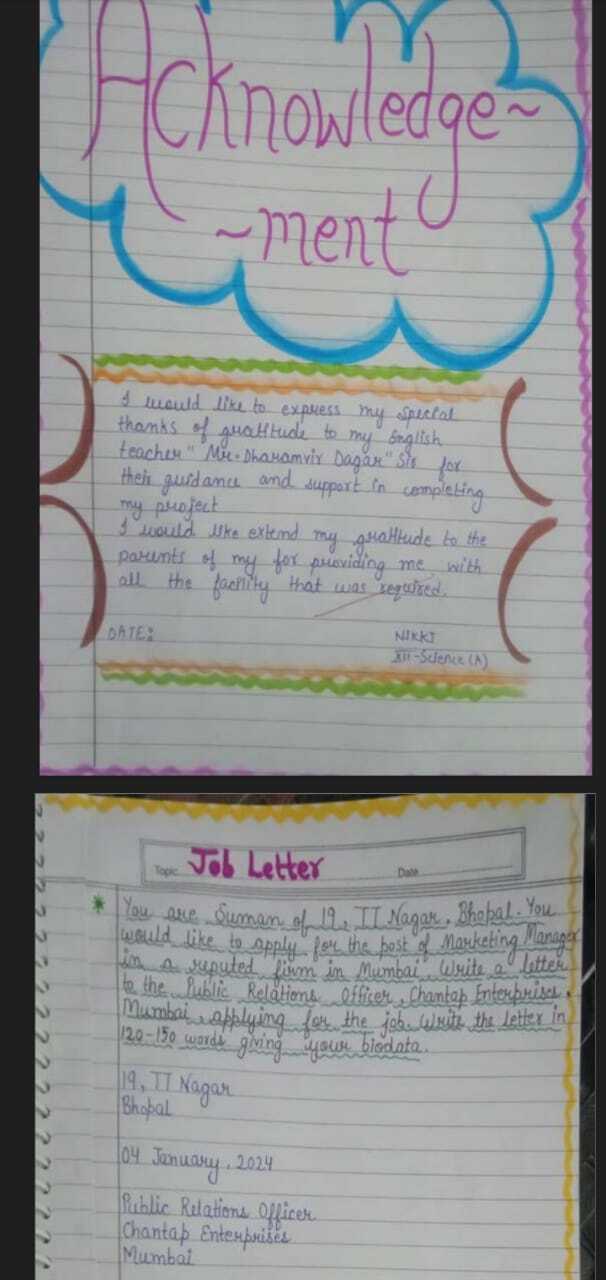 Acknowledge~
~ment
I would like to express my special
thanks of gratitude to my English
teacher "Mr. Dharamvir Dagar" Sir for
their guidance and support in completing
my project
I would like extend my gratitude to the
parents of my for providing me with
all the facility that was required.
DATE:
NIKKI
XII-Science (A)
Topic Job Letter Date
* You are Suman of 19, TT Nagar, Bhopal. You
would like to apply for the post of Marketing Manager
in a reputed firm in Mumbai. Write a letter
to the Public Relations Officer, Chantap Enterprises,
Mumbai, applying for the job. Write the letter in
120-150 words giving your biodata.
19, TT Nagar
Bhopal
04 January, 2024
Public Relations Officer
Chantap Enterprises
Mumbai